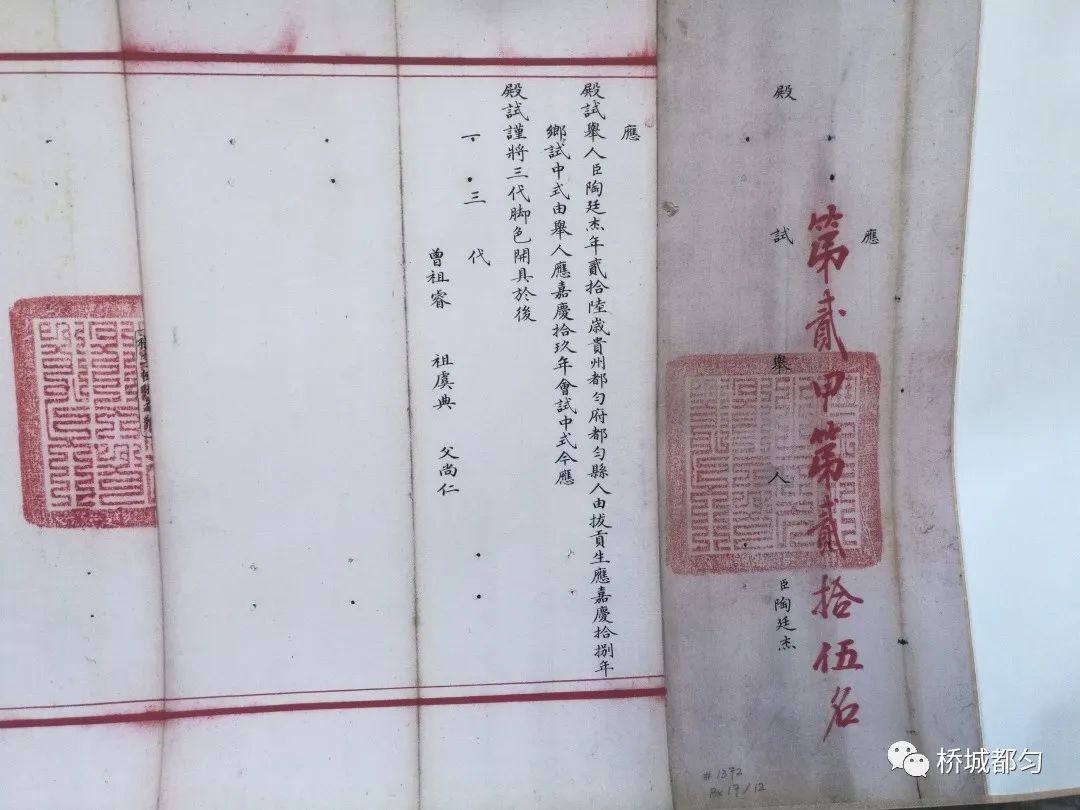 應
殿試舉人臣陶廷杰
第貳甲第貳拾伍名
應
殿試舉人臣陶廷杰年貳拾陸歲貴州都勻府都勻縣人由拔貢生應嘉慶拾捌年
鄉試中式由舉人應嘉慶拾玖年會試中式今應
殿試謹將三代脚色開具於後
一三代
曾祖睿 祖虞典 父尚仁
#1372
Bx 17/12
桥城都匀